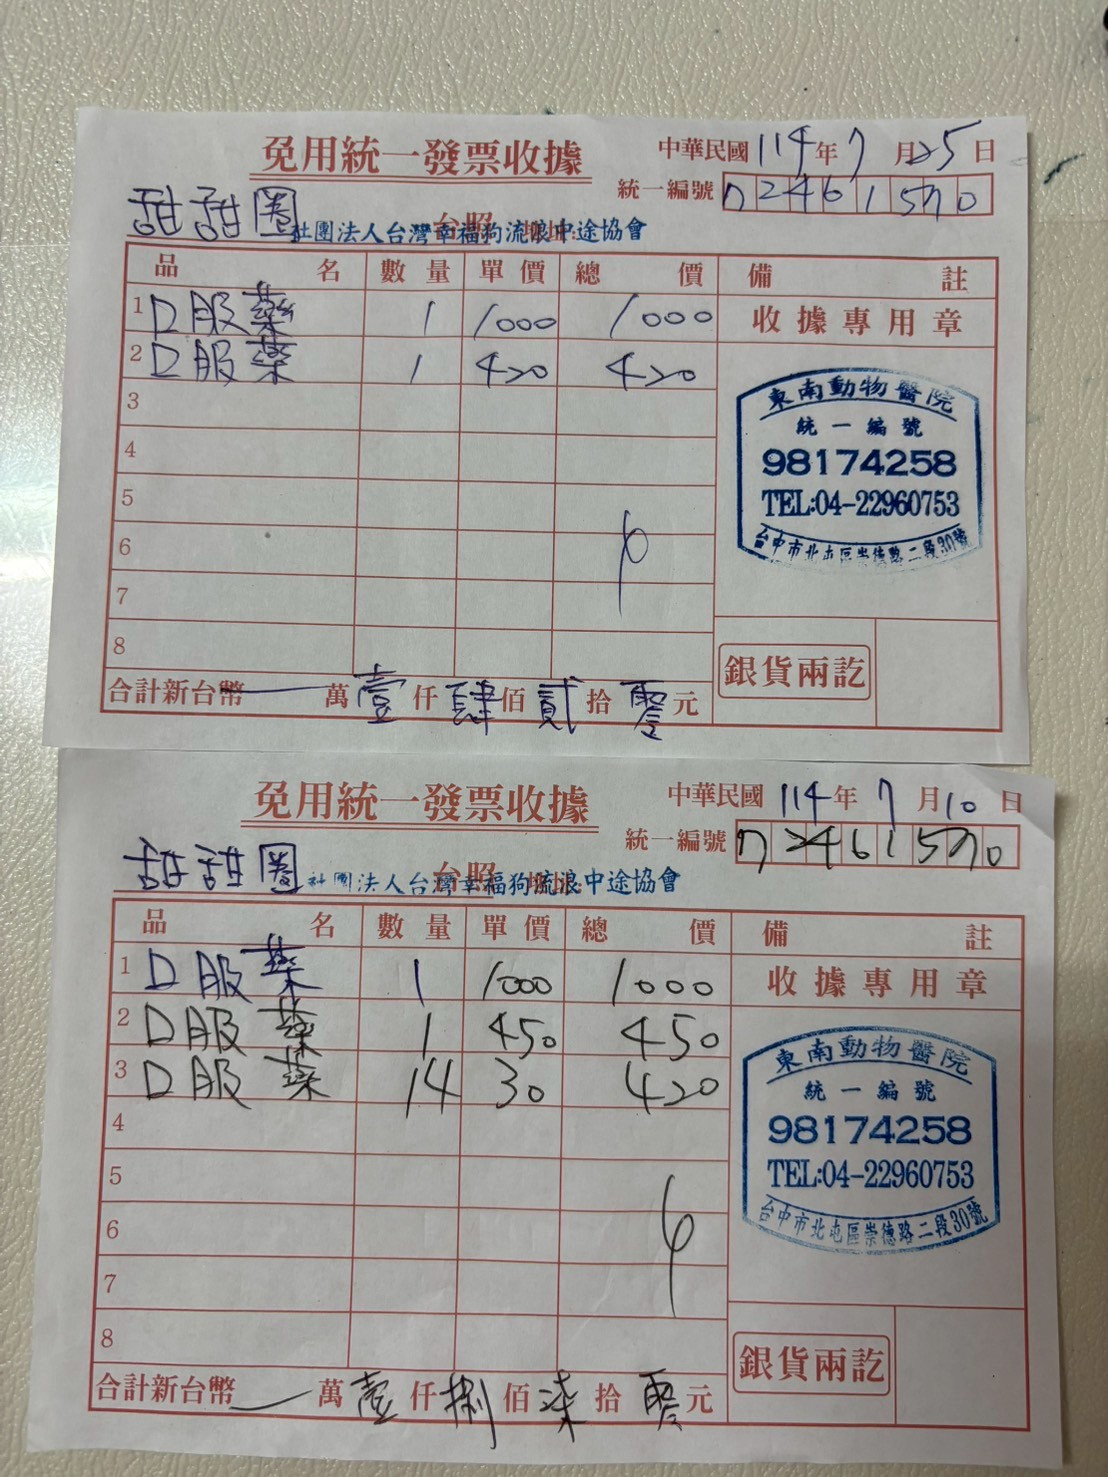 免用統一發票收據
中華民國114年7月25日
統一編號 72461570
甜甜圈 社團法人台灣幸福狗流浪中途協會
台照
品名 數量 單價 總價 備註
1 口服藥 1 1000 1000 收據專用章
2 口服藥 1 420 420
3
4
5
6
7
8
東南動物醫院
統一編號
98174258
TEL:04-22960753
台中市北屯區崇德路二段30號
銀貨兩訖
合計新台幣 萬壹仟肆佰貳拾零元
免用統一發票收據
中華民國114年7月10日
統一編號 72461570
甜甜圈 社團法人台灣幸福狗流浪中途協會
台照
品名 數量 單價 總價 備註
1 口服藥 1 1000 1000 收據專用章
2 口服藥 1 450 450
3 口服藥 14 30 420
4
5
6
7
8
東南動物醫院
統一編號
98174258
TEL:04-22960753
台中市北屯區崇德路二段30號
銀貨兩訖
合計新台幣 萬壹仟捌佰柒拾零元